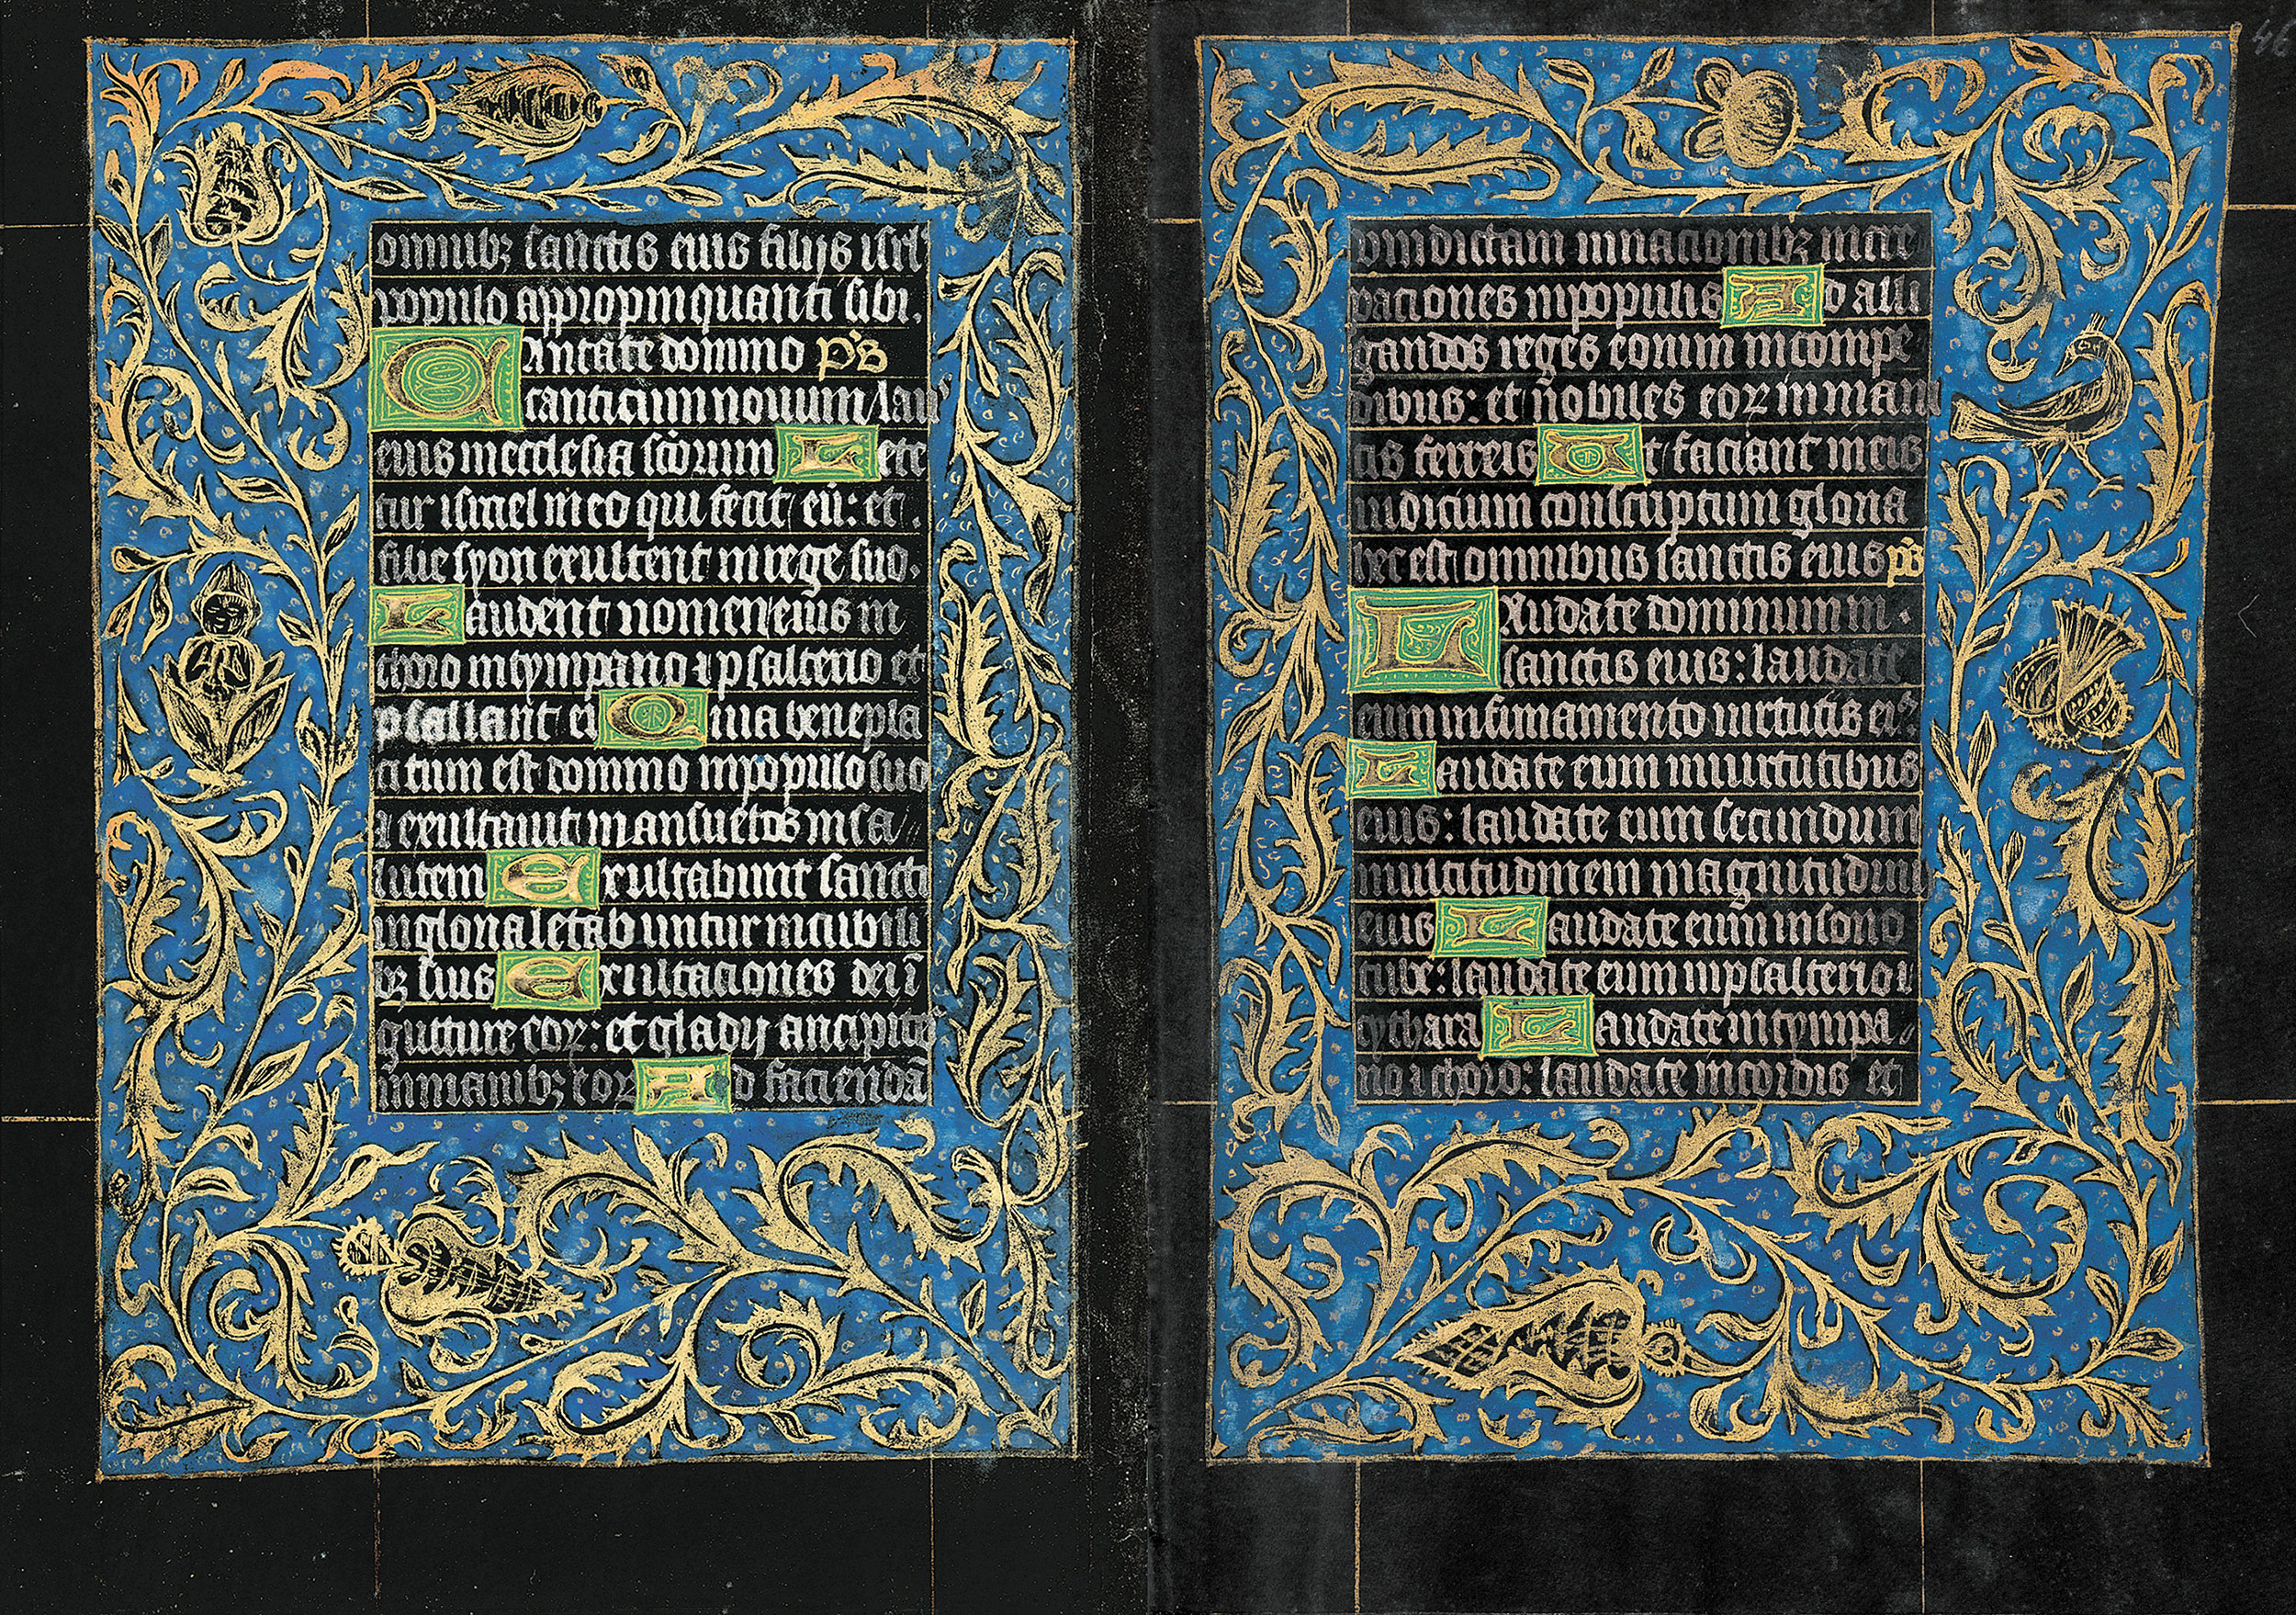 omnibꝫ sanctis eius filijs isrl'
populo appropinquanti sibi.
Cantate domino p̄s
canticum nouum lau
eius in ecclesia sc̄orum Lete
tur israel in eo qui fecit eū: et
filie syon exultent in rege suo.
Laudent nomen eius in
choro in tympano ⁊ psalterio et
psallant ei Quia benepla
citum est domino in populo suo
⁊ exultauit mansuetos in sa
lutem Exultabunt sancti
in gloria letabuntur in cubili
bꝫ suis Exultaciones dei ī
gutture eoꝝ: et gladij ancipites
in manibꝫ eoꝝ Ad faciendā
uindictam in nacionibꝫ incre
paciones in populis Ad alli
gandos reges eorum in compe
dibus: et nobiles eoꝝ in mani
cis ferreis Ut faciant in eis
iudicium conscriptum gloria
hec est omnibus sanctis eius p̄s
Laudate dominum in
sanctis eius: laudate
eum in firmamento uirtutis eiꝰ
Laudate eum in uirtutibus
eius: laudate eum secundum
multitudinem magnitudinis
eius Laudate eum in sono
tube: laudate eum in psalterio ⁊
cythara Laudate in tympa
no ⁊ choro: laudate in cordis et
46